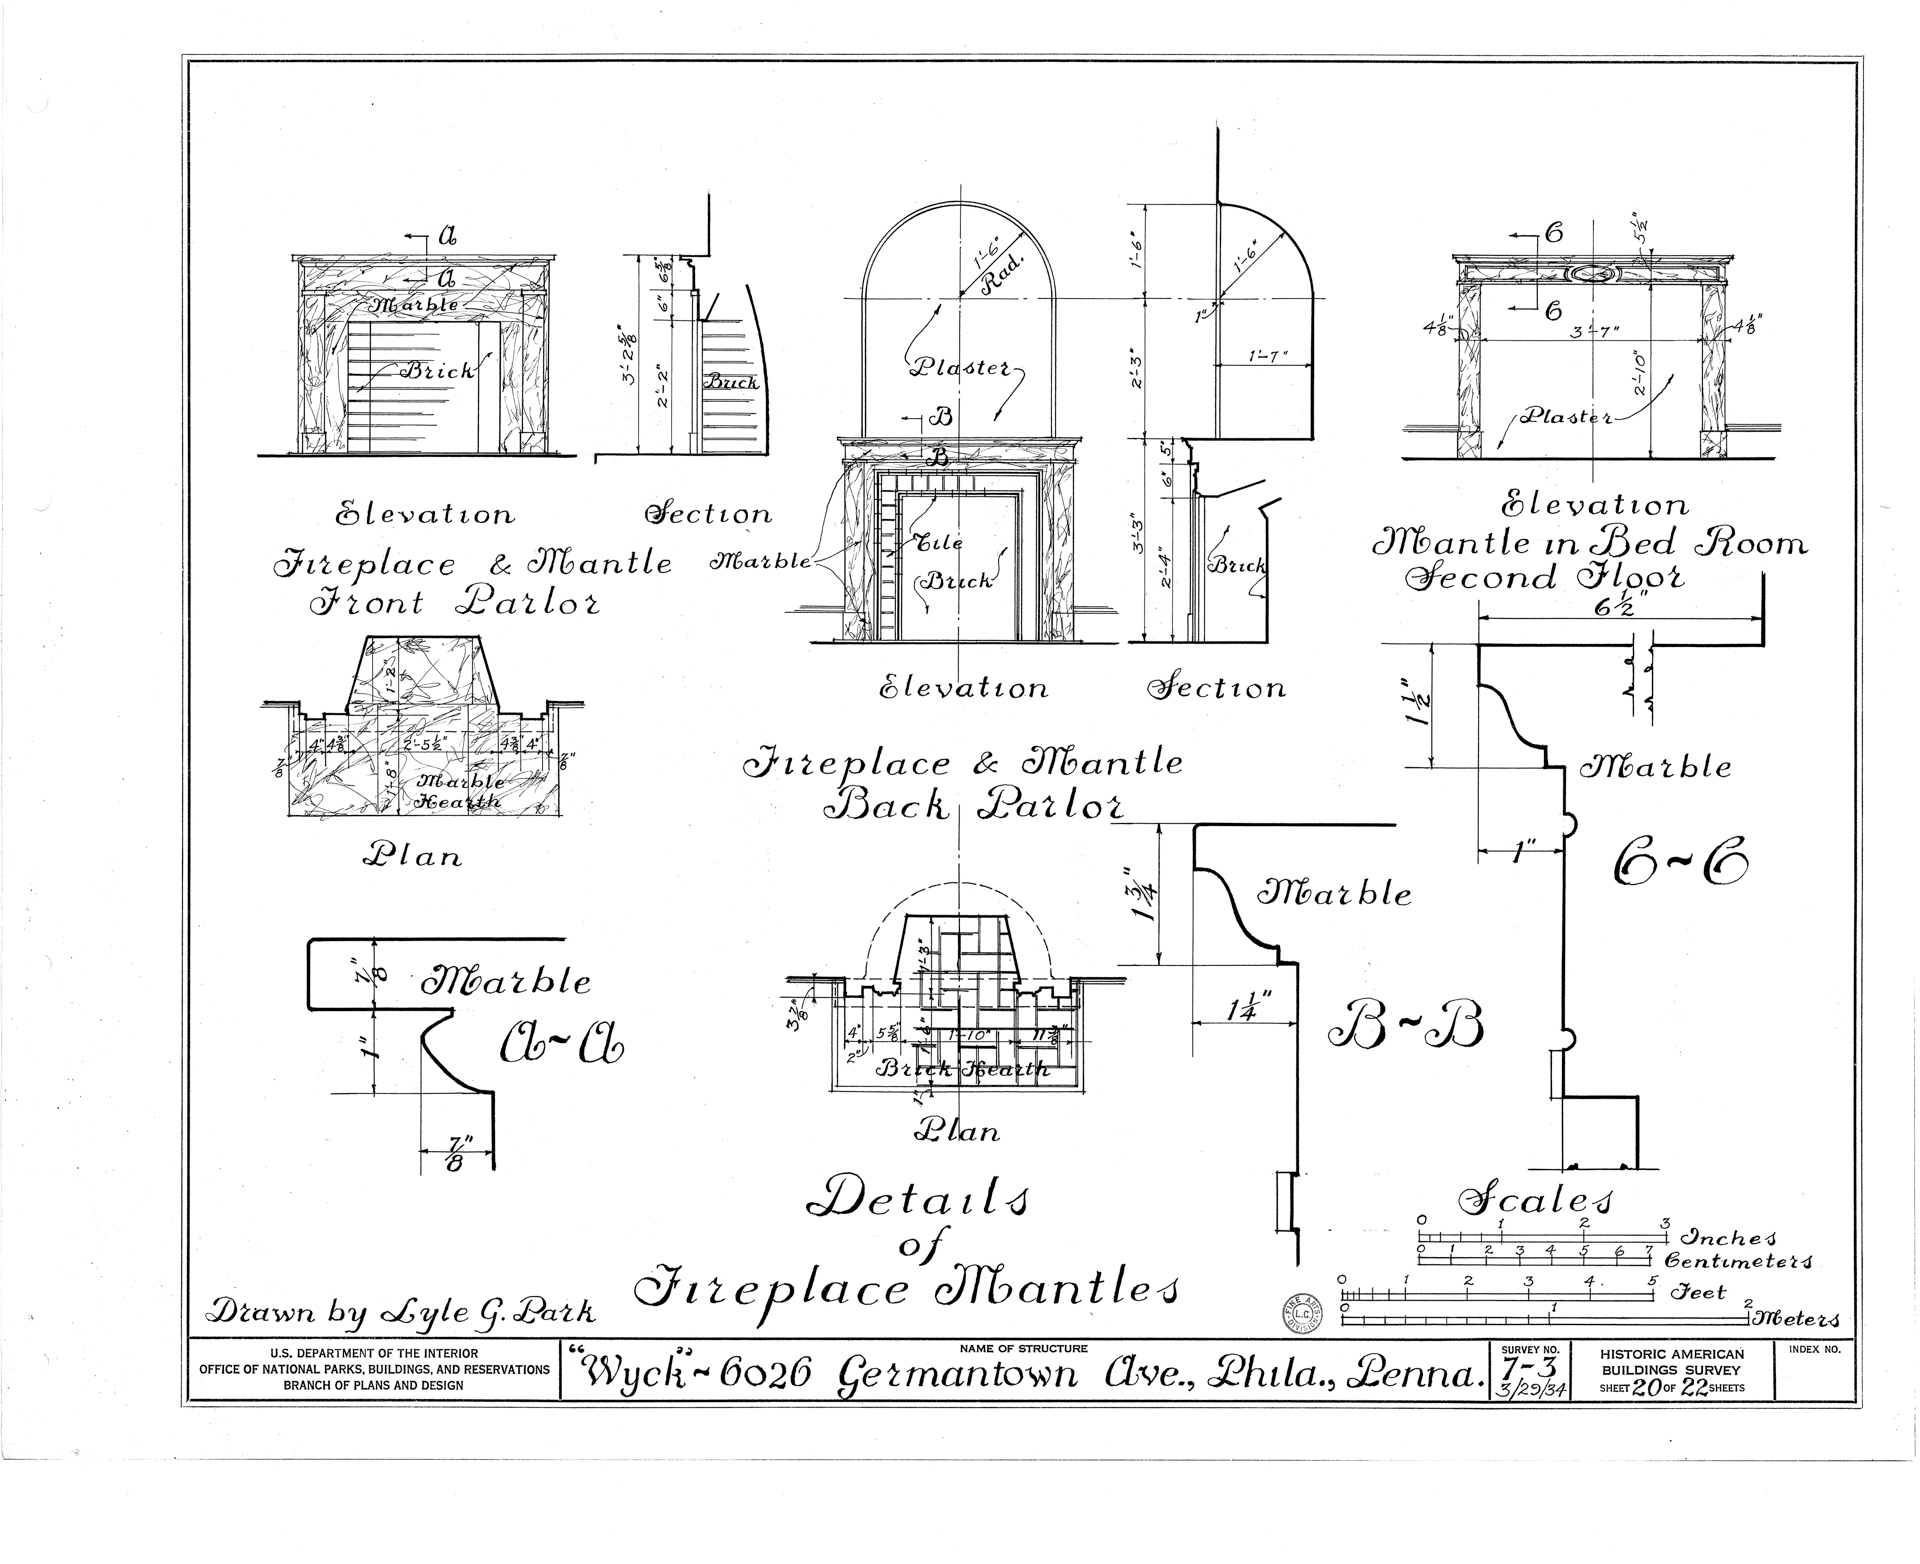 A
A
Marble
Brick
3'-2 5/8"
6 5/8"
6"
2'-2"
Brick
Elevation
Section
Fireplace & Mantle
Front Parlor
1'-2"
4" 4 3/8" 2'-5 1/2" 4 3/8" 4"
7/8" 7/8"
1'-8"
Marble
Hearth
Plan
7/8"
Marble
1"
A~A
7/8"
1'-6"
Rad.
Plaster
B
B
Marble
Tile
Brick
1'-6"
1'-6"
1"
2'-3"
1'-7"
5"
6"
3'-3"
2'-4"
Brick
Elevation
Section
Fireplace & Mantle
Back Parlor
1'-3"
3 7/8"
4" 5 5/8" 1'-10"
2"
1'-6"
Brick Hearth
1"
Plan
1 3/4"
Marble
1 1/4"
B~B
C
5 1/2"
C
4 1/8" 3'-7" 4 1/8"
2'-10"
Plaster
Elevation
Mantle in Bed Room
Second Floor
6 1/2"
1 1/2"
Marble
1"
C~C
Details
of
Fireplace Mantles
Scales
0 1 2 3 Inches
0 1 2 3 4 5 6 7 Centimeters
0 1 2 3 4 5 Feet
0 1 2 Meters
FINE ARTS
L.C.
DIVISION
Drawn by Lyle G. Park
U.S. DEPARTMENT OF THE INTERIOR
OFFICE OF NATIONAL PARKS, BUILDINGS, AND RESERVATIONS
BRANCH OF PLANS AND DESIGN
NAME OF STRUCTURE
"Wyck"~6026 Germantown Ave., Phila., Penna.
SURVEY NO.
7-3
3/29/34
HISTORIC AMERICAN
BUILDINGS SURVEY
SHEET 20 OF 22 SHEETS
INDEX NO.